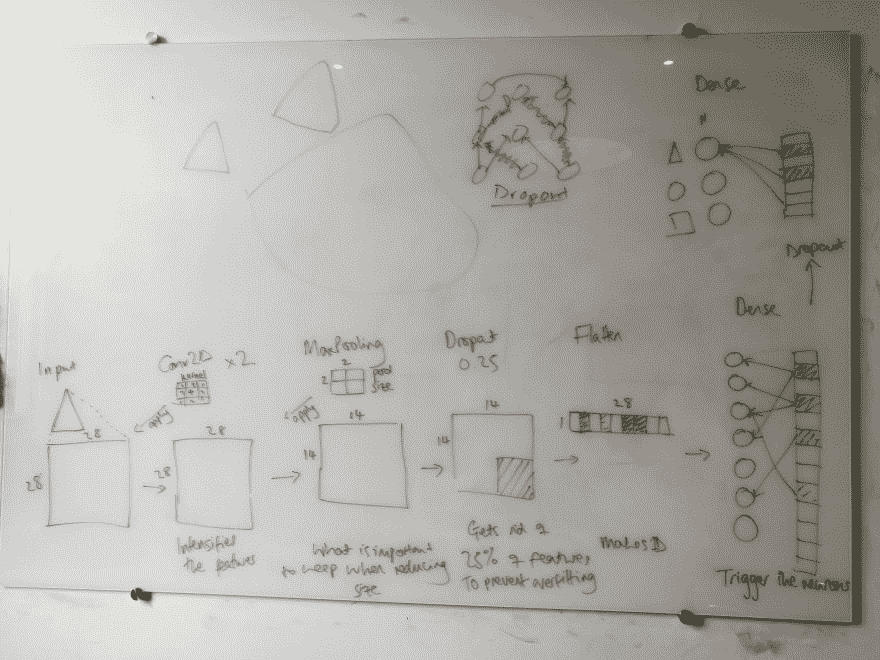 Dropout
Dense
Dropout
Dense
Input
28
28
Conv2D x2
kernel
apply
28
28
Intensified
the features
MaxPooling
2
2
pool
size
apply
14
14
What is important
to keep when reducing
size
Dropout
0.25
14
14
Gets rid of
25% of features
To prevent overfitting
Flatten
28
1
makes 1D
Trigger the neurons